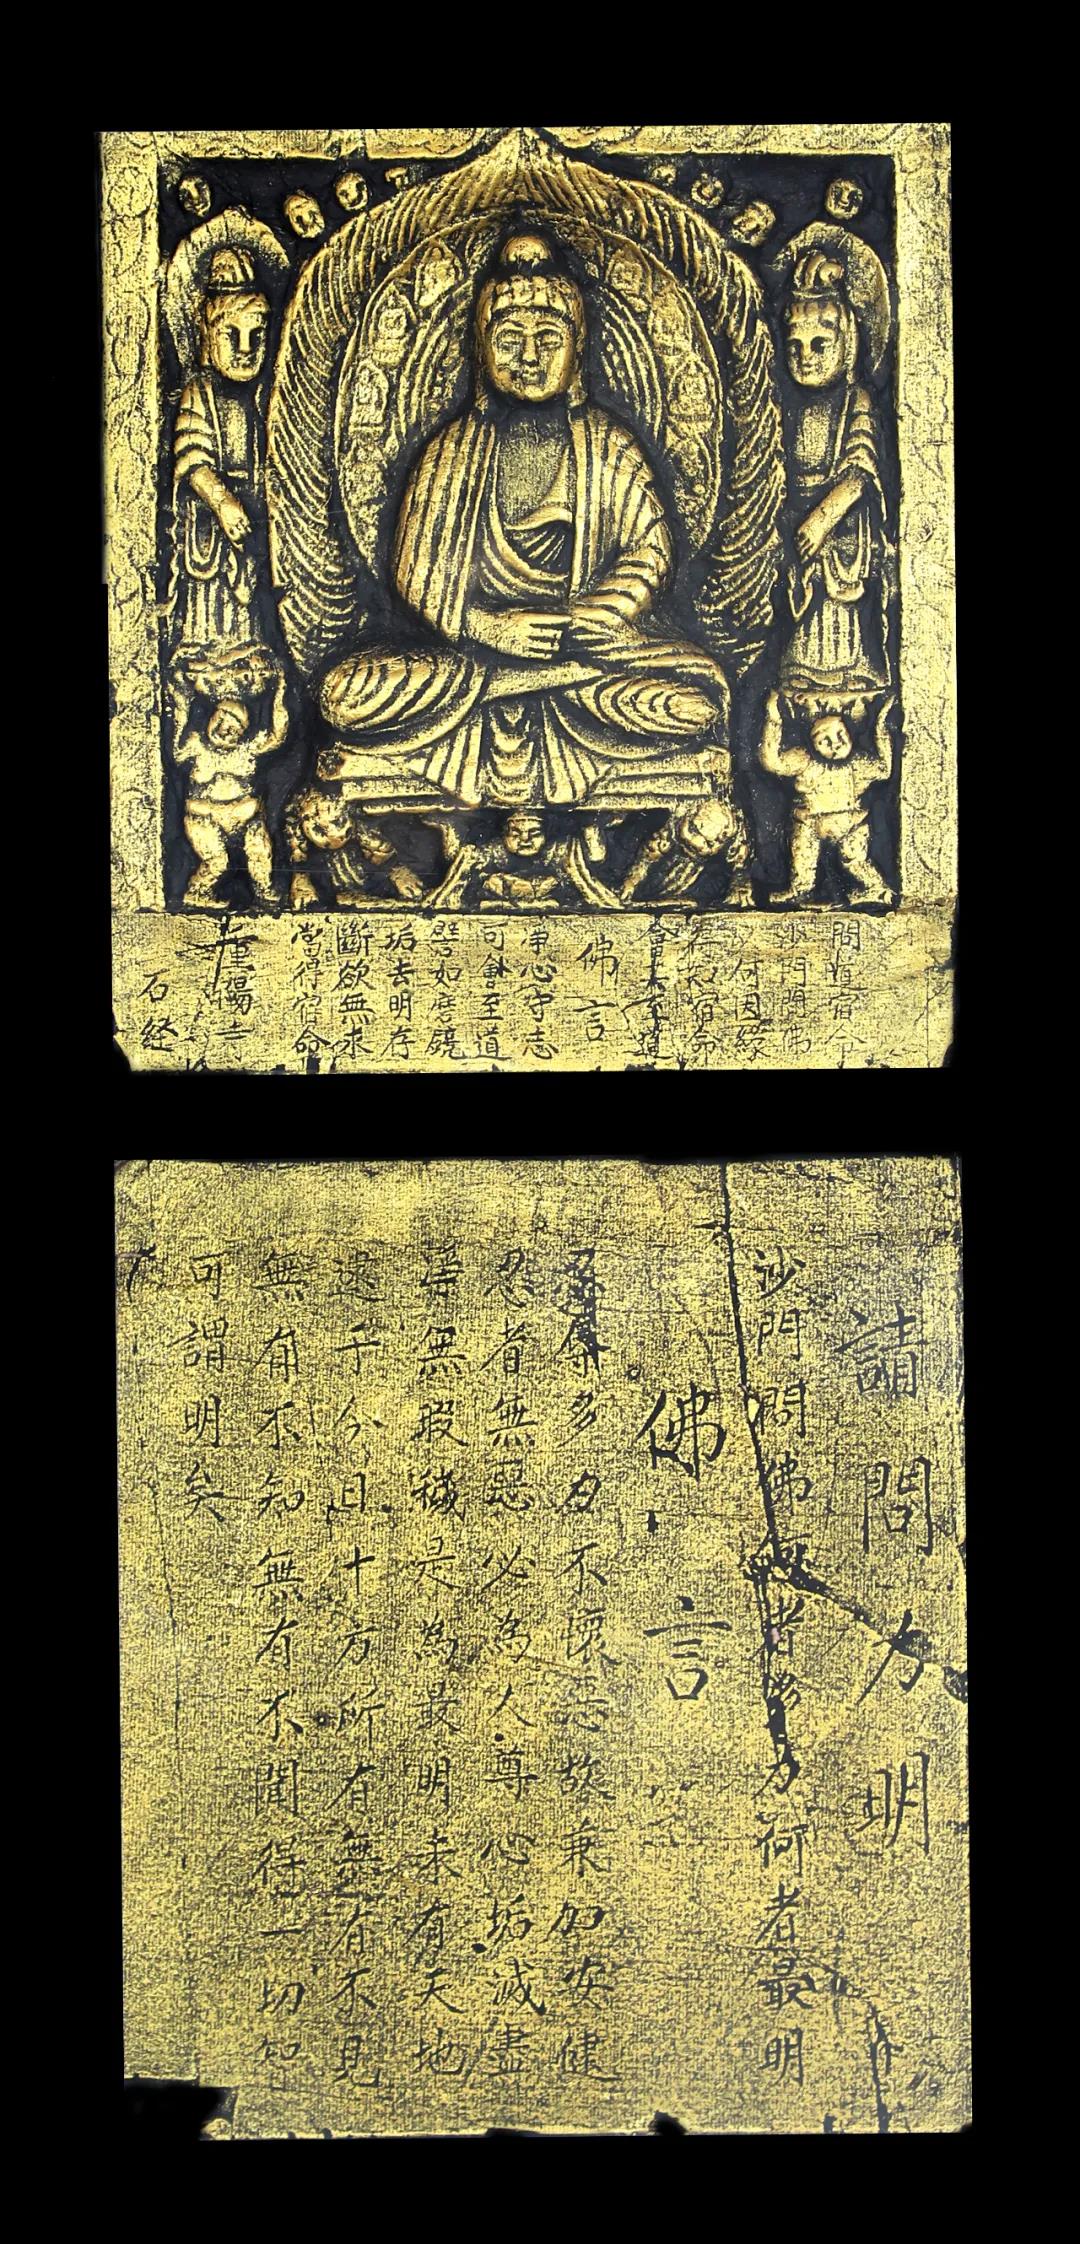 問道宿命
沙門問佛
以何因緣
得知宿命
會其至道
佛言
淨心守志
可會至道
譬如磨鏡
垢去明存
斷欲無求
當得宿命
重陽寺
石経
請問力明
沙門問佛何者多力何者最明
佛言
忍辱多力不懷惡故兼加安健
忍者無惡必為人尊心垢滅盡
淨無瑕穢是為最明未有天地
逮于今日十方所有無有不見
無有不知無有不聞得一切知
可謂明矣